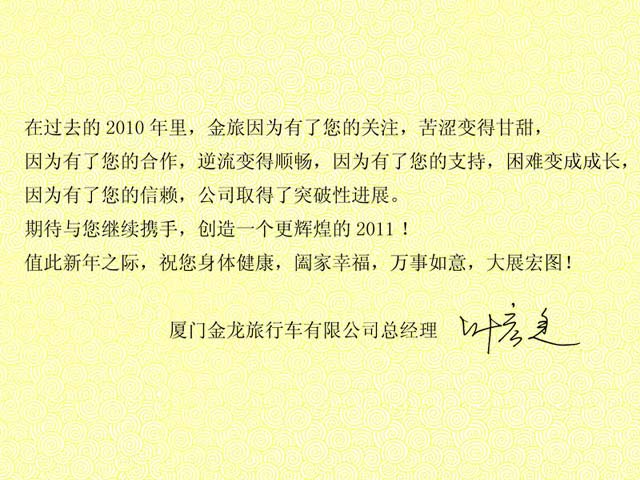 在过去的 2010 年里，金旅因为有了您的关注，苦涩变得甘甜，
因为有了您的合作，逆流变得顺畅，因为有了您的支持，困难变成成长，
因为有了您的信赖，公司取得了突破性进展。
期待与您继续携手，创造一个更辉煌的 2011！
值此新年之际，祝您身体健康，阖家幸福，万事如意，大展宏图！
厦门金龙旅行车有限公司总经理